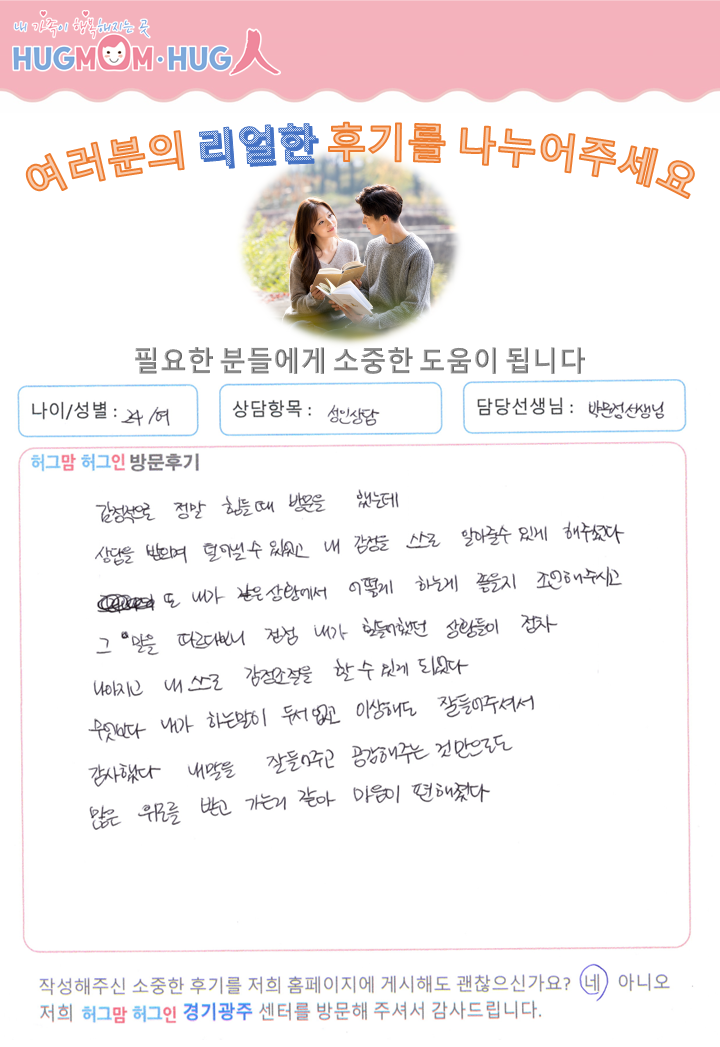 내 가족이 행복해지는 곳
HUGMOM·HUG人
여러분의 리얼한 후기를 나누어주세요
필요한 분들에게 소중한 도움이 됩니다
나이/성별 : 24 /여
상담항목 : 성인상담
담당선생님 : 선생님
허그맘 허그인 방문후기
감정적으로 정말 힘들때 방문을 했는데
상담을 받으며 털어낼 수 있었고 내 감정을 스스로 알아줄수 있게 해주셨다
또 내가 같은 상황에서 어떻게 하는게 좋을지 조언해주시고
그 말을 따르다보니 점점 내가 힘들어했던 상황들이 점차
나아지고 내 스스로 감정조절을 할 수 있게 되었다
무엇보다 내가 하는말이 두서없고 이상해도 잘들어주셔서
감사했다 내말을 잘들어주고 공감해주는 것만으로도
많은 위로를 받고 가는거 같아 마음이 편해졌다
작성해주신 소중한 후기를 저희 홈페이지에 게시해도 괜찮으신가요? 네 아니오
저희 허그맘 허그인 경기광주 센터를 방문해 주셔서 감사드립니다.